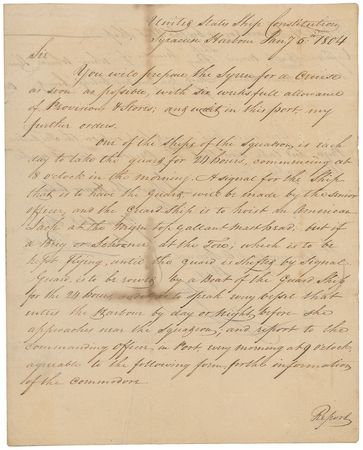 United States Ship Constitution
Syracuse Harbour Jany 5th 1804
Sir
You will prepare the Syren for a Cruise
as soon as possible, with six weeks full allowance
of Provisions & Stores; and wait in this port, my
further orders.
One of the Ships of the Squadron, is each
day to take the guard for 24 hours, commencing at
8 oClock in the morning. A signal for the Ship
that is to have the Guard, will be made by the senior
officer, and the Guard Ship is to hoist an American
Jack at the Mizen top Gallant Mast head. but if
a Brig or Schooner at the Fore; which is to be
kept flying, until the guard is shifted by Signal
Guard, is to be rowed by a Boat of the Guard Ship
for the 24 hours to speak every before that
enters the Harbour by day or Night, before she
approaches near the Squadron, and report to the
commanding officer, in Port, every morning at 9 oClock
agreeable to the following form, for the information
of the Commodore
Report